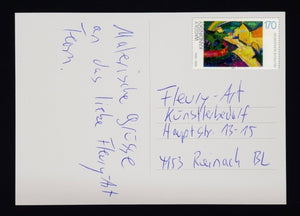 Malerische Grüsse
an das liebe Fleury-Art
Team.
170
Fleury-Art
Künstlerbedarf
Hauptstr. 13-15
4153 Reinach BL